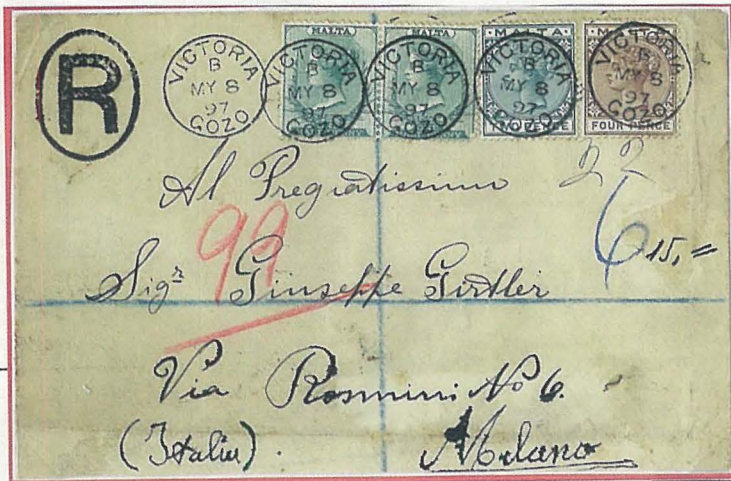 R
VICTORIA B MY 8 97 GOZO
MALTA
VICTORIA B MY 8 97 GOZO
MALTA
VICTORIA B MY 8 97 GOZO
MALTA
VICTORIA B MY 8 97 GOZO
TWO PENCE
VICTORIA B MY 8 97 GOZO
FOUR PENCE
Al Pregiatissimo
22
99
6 15,=
Sigr Giuseppe Girtler
Via Rosmini No 6.
(Italia). Milano